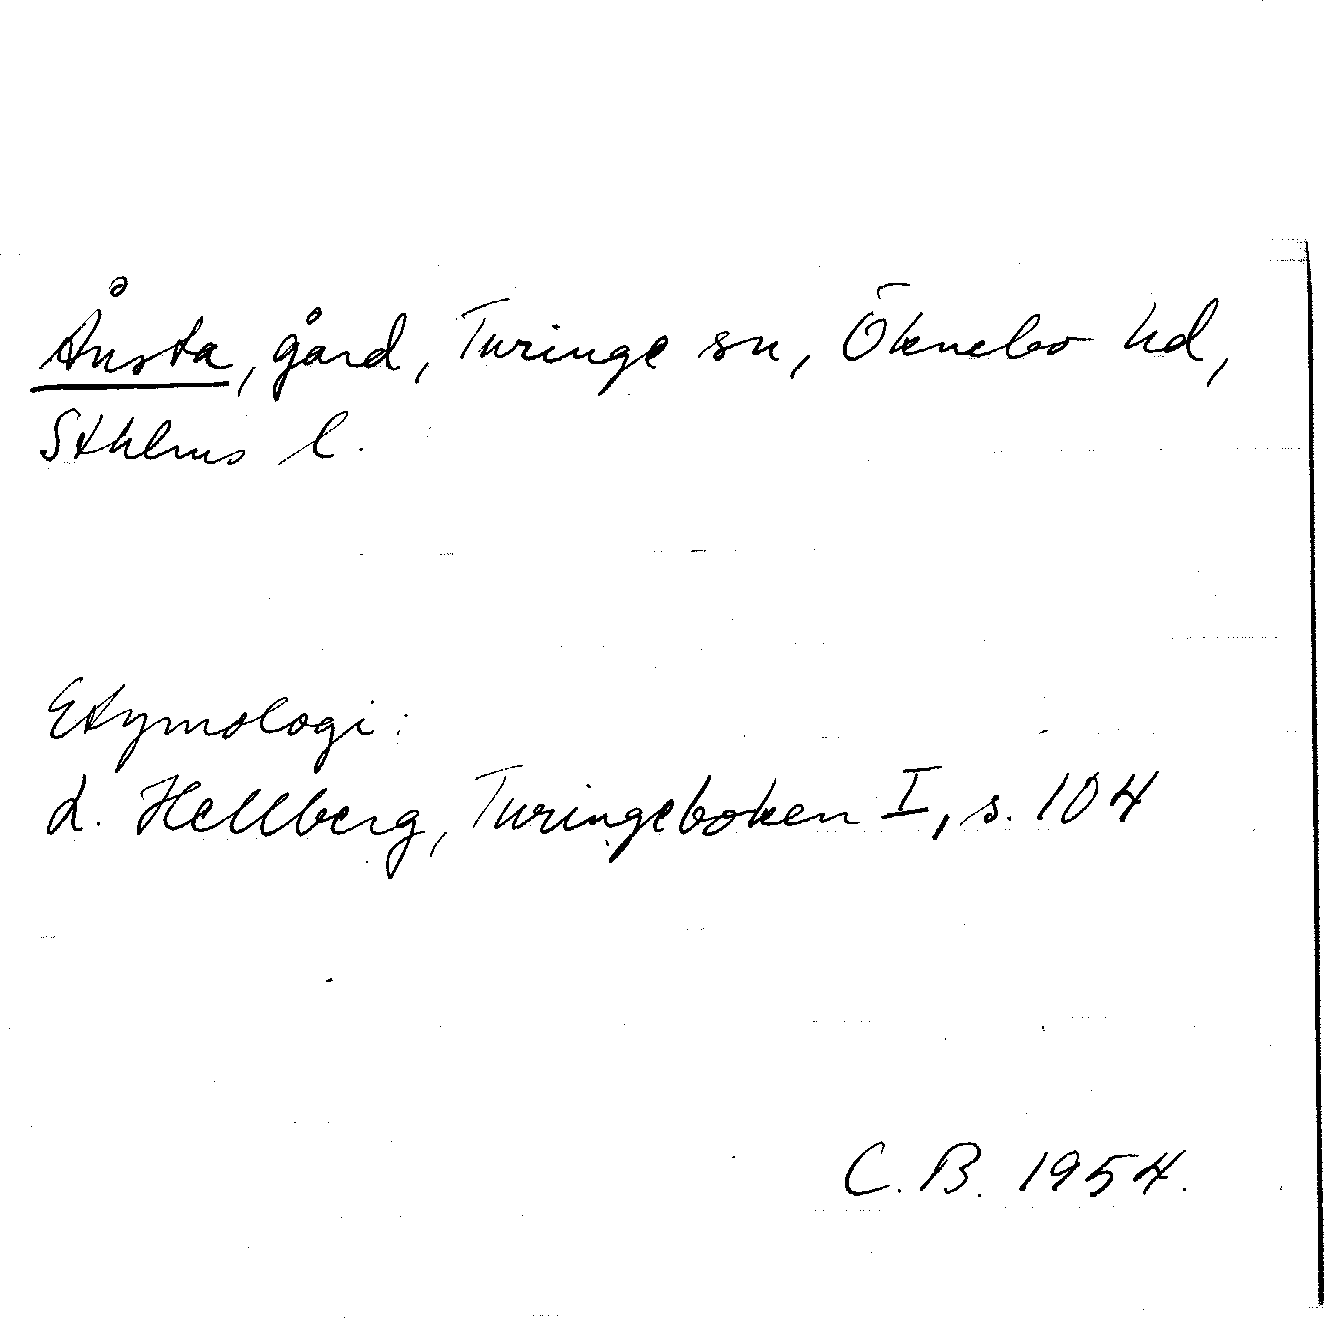 Ånsta, gård, Turinge sn, Öknebo hd,
Sthlms l.
Etymologi:
L. Hellberg, Turingeboken I, s. 104
C. B. 1954.